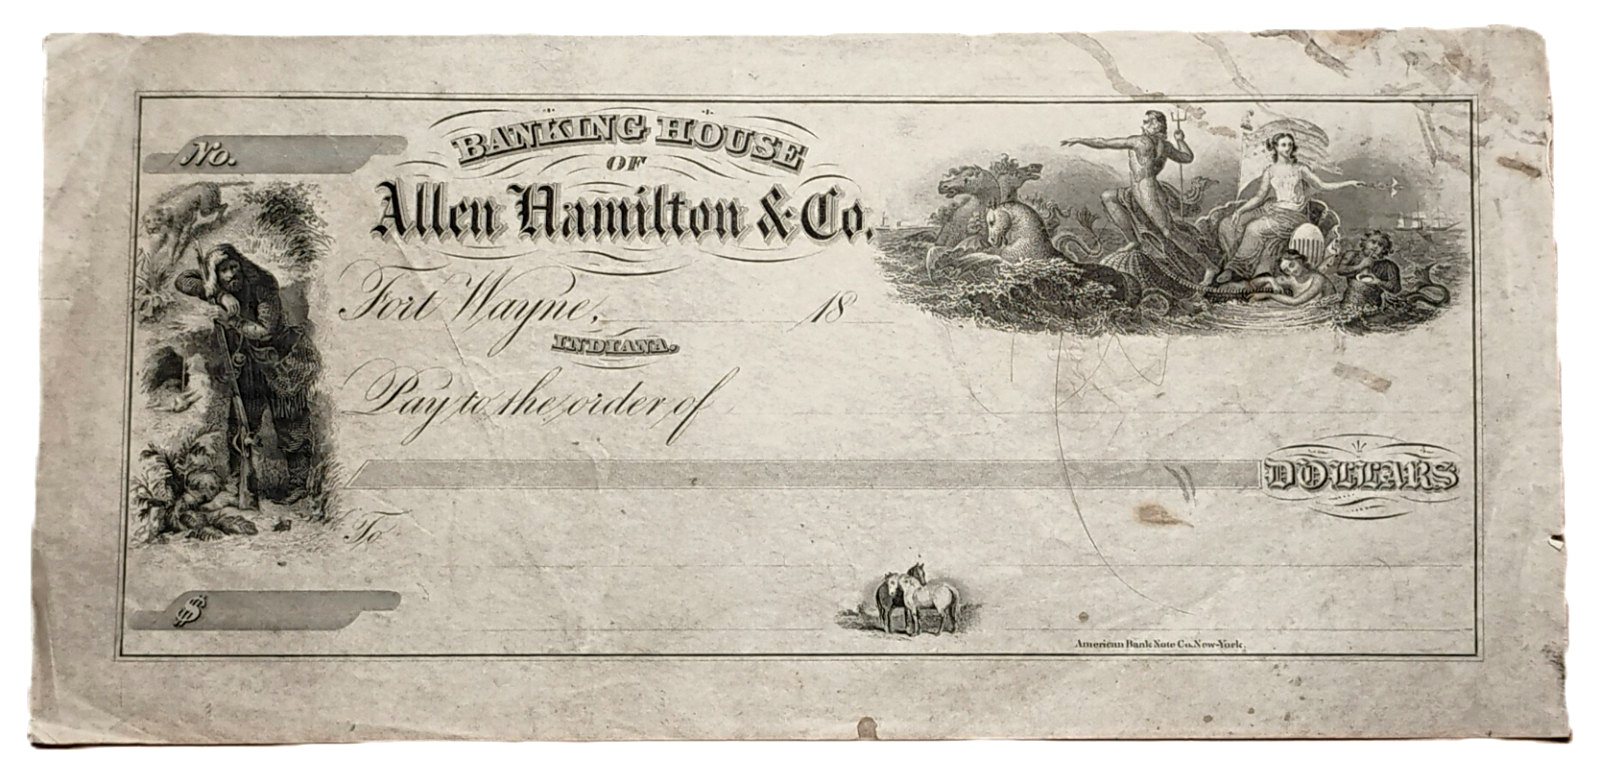 No.
BANKING HOUSE
OF
Allen Hamilton & Co.
Fort Wayne, 18
INDIANA.
Pay to the order of
DOLLARS
To
$
American Bank Note Co. New-York.